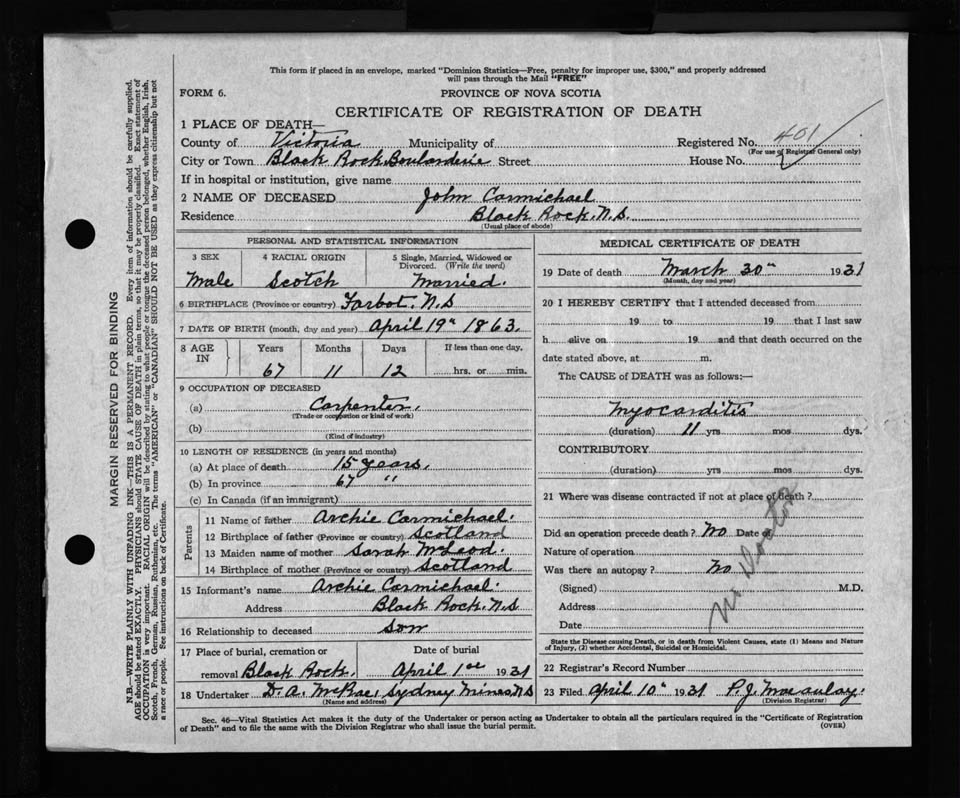 This form if placed in an envelope, marked "Dominion Statistics—Free, penalty for improper use, $300," and properly addressed
will pass through the Mail "FREE"
FORM 6.
PROVINCE OF NOVA SCOTIA
CERTIFICATE OF REGISTRATION OF DEATH
1 PLACE OF DEATH—
County of Victoria Municipality of Registered No. 401
(For use of Registrar General only)
City or Town Black Rock Boularderie Street House No.
If in hospital or institution, give name
2 NAME OF DECEASED John Carmichael
Residence Black Rock. N.S.
(Usual place of abode)
PERSONAL AND STATISTICAL INFORMATION
3 SEX 4 RACIAL ORIGIN 5 Single, Married, Widowed or
Divorced. (Write the word)
Male Scotch Married.
6 BIRTHPLACE (Province or country) Tarbot. N.S
7 DATE OF BIRTH (month, day and year) April 19th 1863.
8 AGE IN Years Months Days If less than one day,
67 11 12 hrs. or min.
9 OCCUPATION OF DECEASED
(a) Carpenter.
(Trade or occupation or kind of work)
(b)
(Kind of industry)
10 LENGTH OF RESIDENCE (in years and months)
(a) At place of death 15 years.
(b) In province 67 "
(c) In Canada (if an immigrant)
Parents
11 Name of father Archie Carmichael.
12 Birthplace of father (Province or country) Scotland
13 Maiden name of mother Sarah McLeod.
14 Birthplace of mother (Province or country) Scotland
15 Informant's name Archie Carmichael.
Address Black Rock. N.S
16 Relationship to deceased son
17 Place of burial, cremation or Date of burial
removal Black Rock. April 1st 1931
18 Undertaker D. A. McRae, Sydney Mines, N.S
(Name and address)
MEDICAL CERTIFICATE OF DEATH
19 Date of death March 30th 1931
(Month, day and year)
20 I HEREBY CERTIFY that I attended deceased from
19 to 19 that I last saw
h alive on 19 and that death occurred on the
date stated above, at m.
The CAUSE of DEATH was as follows:—
Myocarditis
(duration) 11 yrs mos dys.
CONTRIBUTORY
(duration) yrs mos dys.
21 Where was disease contracted if not at place of death?
Did an operation precede death? No Date of
Nature of operation
Was there an autopsy? No
(Signed) M.D.
Address
Date
No Doctor
State the Disease causing Death, or in death from Violent Causes, state (1) Means and Nature
of Injury, (2) whether Accidental, Suicidal or Homicidal.
22 Registrar's Record Number
23 Filed April 10th 1931 P. J. Macaulay.
(Division Registrar)
Sec. 46—Vital Statistics Act makes it the duty of the Undertaker or person acting as Undertaker to obtain all the particulars required in the "Certificate of Registration
of Death" and to file the same with the Division Registrar who shall issue the burial permit.
(OVER)
MARGIN RESERVED FOR BINDING
N.B.—WRITE PLAINLY WITH UNFADING INK—THIS IS A PERMANENT RECORD. Every item of information should be carefully supplied.
AGE should be stated EXACTLY. PHYSICIANS should STATE CAUSE OF DEATH in plain terms, so that it may be properly classified. Exact statement of
OCCUPATION is very important. RACIAL ORIGIN will be described by stating to what people or tongue the deceased person belonged, whether English, Irish,
Scotch, French, German, Russian, Ruthenian, etc. The terms "AMERICAN" or "CANADIAN" SHOULD NOT BE USED as they express citizenship but not
a race or people. See instructions on back of Certificate.